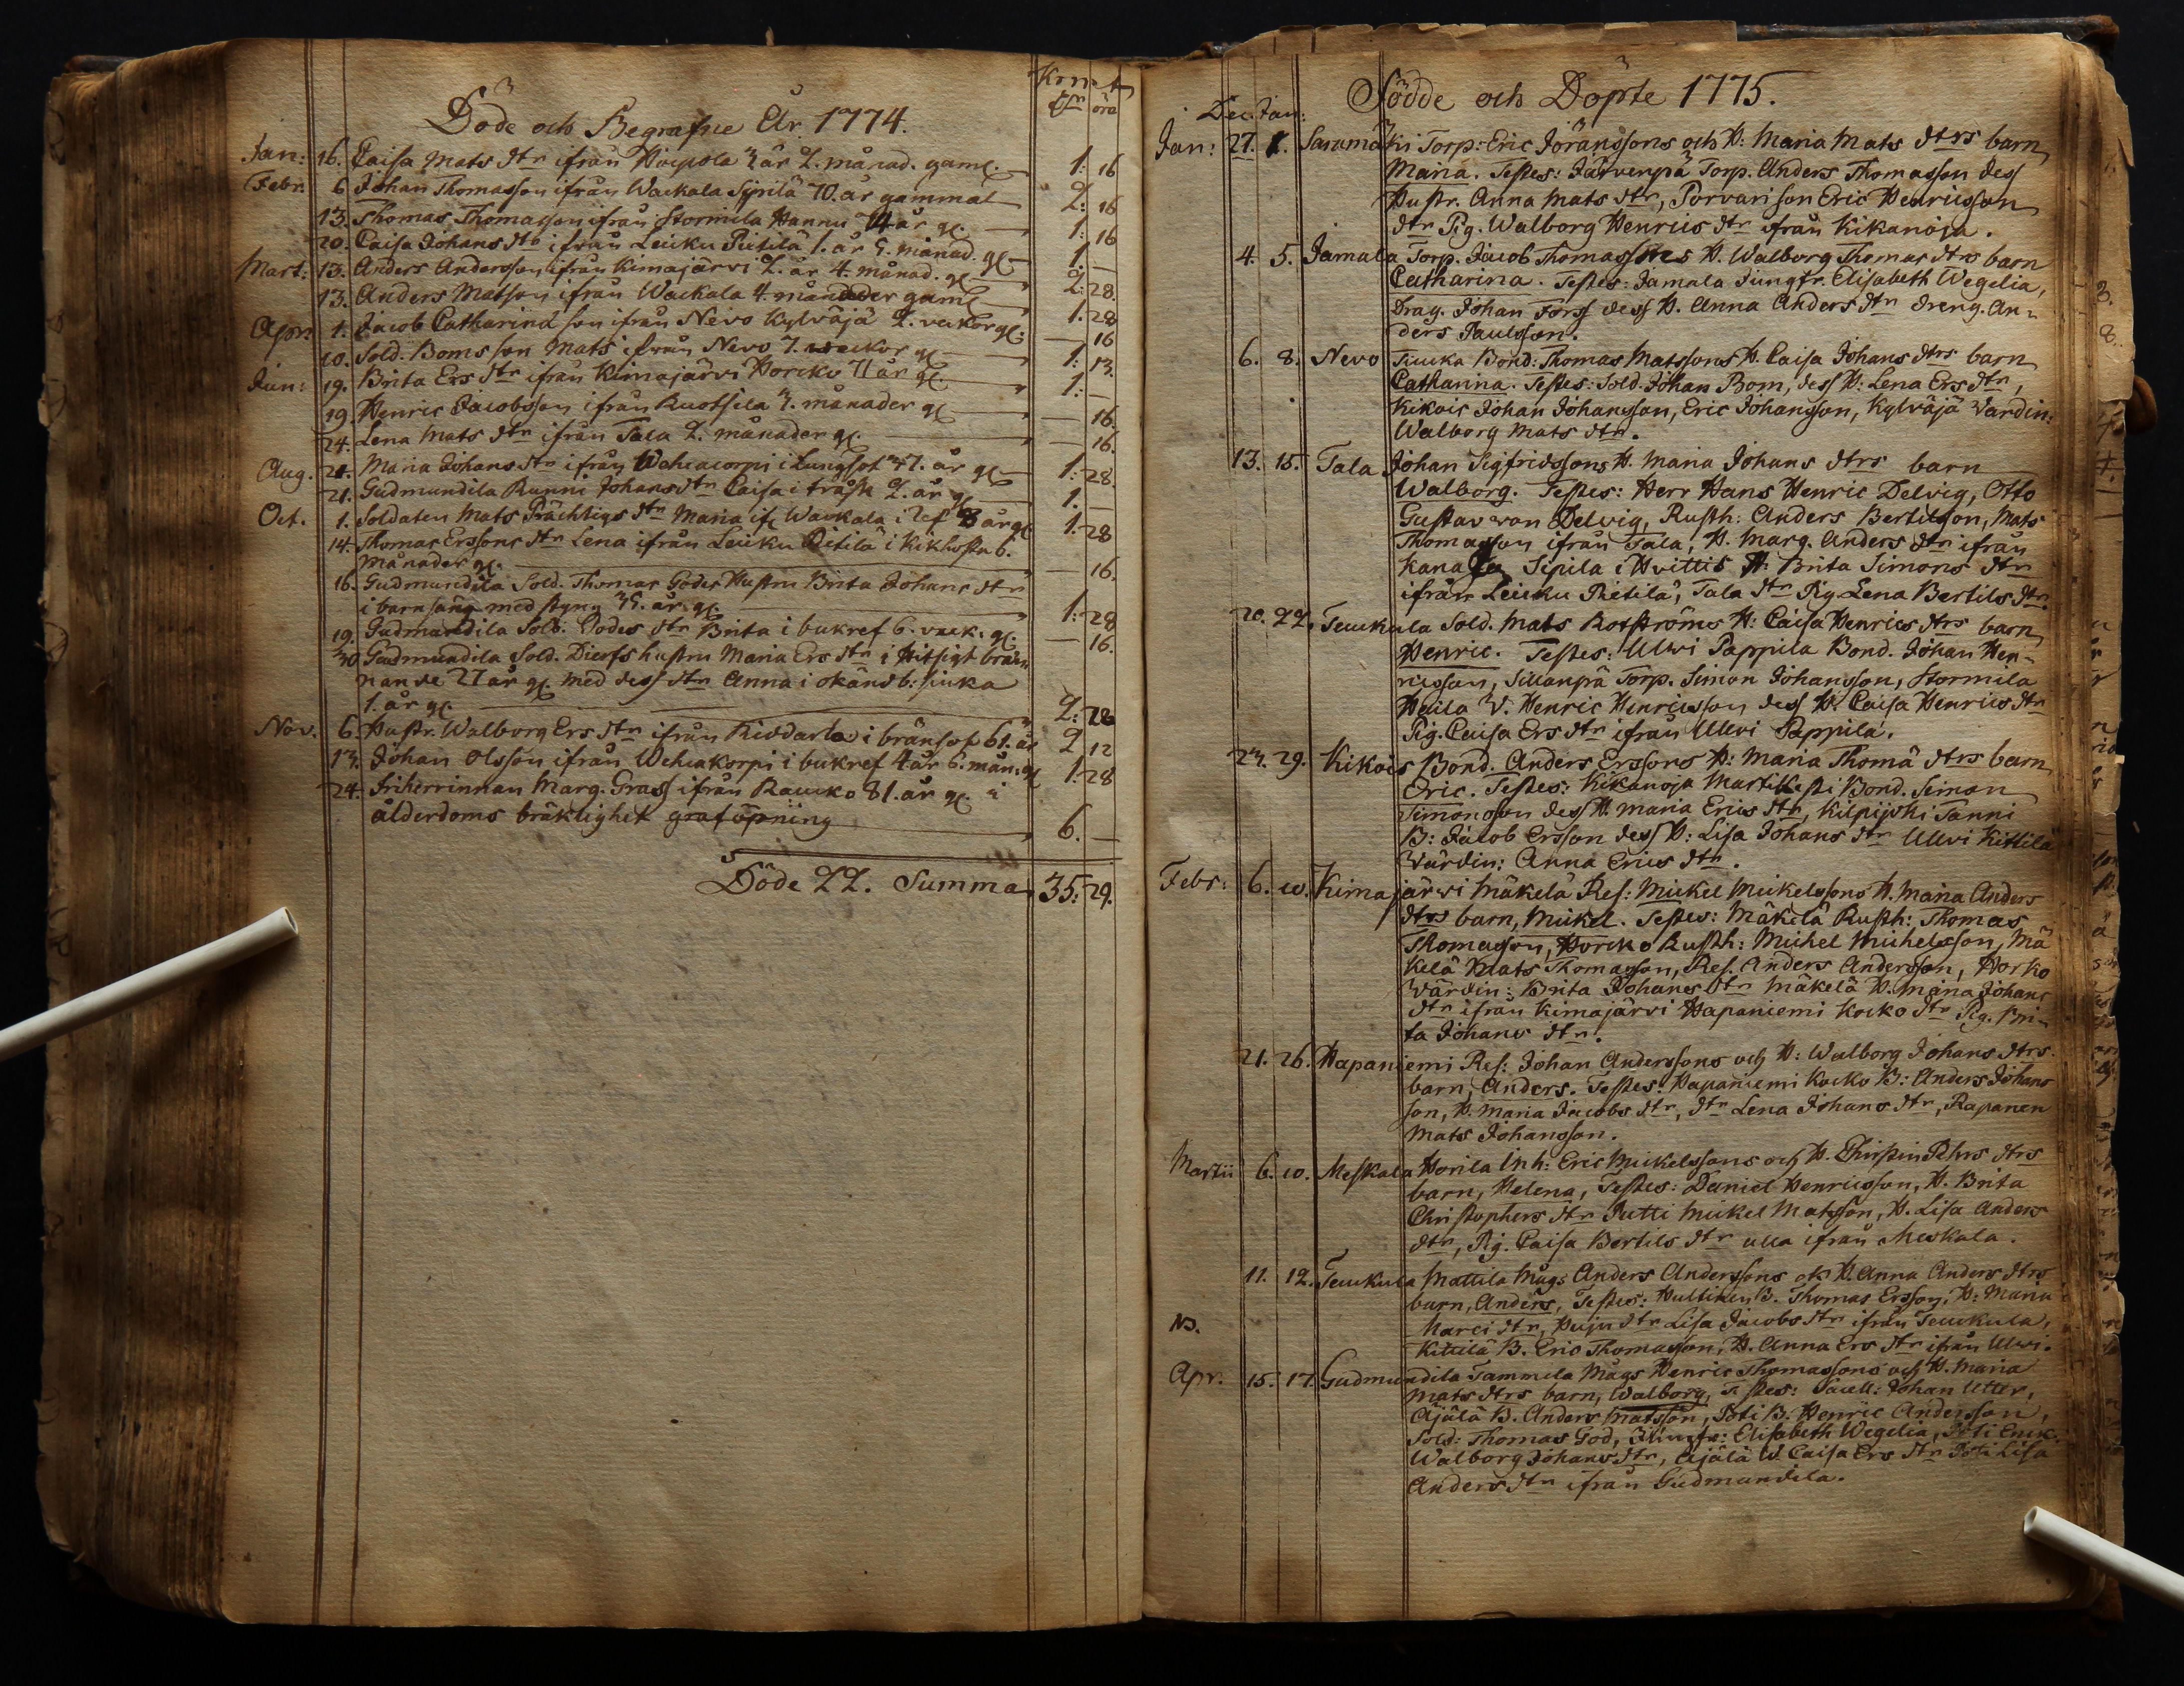 Döde och Begrafne År 1774.
öre
Jan: 16. Caisa Mats dtr ifrån 3 år 2. månad. gaml. 1: 16
Febr. 6 Johan Thomasson ifrån Wackala Sipilä 70. år gammal 2: 16
13. Thomas Thomasson ifrån Stormila Hannu 14 år gl. 1: 16
20. Caisa Johans dtr ifrån Leiku Pietilä 1. år 5. månad. gl 1. —
Mart: 13. Anders Andersson ifrån Kimajärvi 2. år 4. månad. gl 2: 28.
13. Anders Matson ifrån Wackala 4. månader gaml 1: 28
Apr: 1. Jacob Catharinä son ifrån Nevo Kylväjä 2. veckor gl. — 16
10. Sold. Boms son Mats ifrån Nevo 7. weckor gl 1: 13.
Jun: 19. Brita Ers dtr ifrån Kimajärvi Horcko 71 år gl. 1: —
19. Henric Jacobsson ifrån Ruotsila 3. månader gl — 16.
24. Lena Mats dtr ifrån Tala 2. månader gl. — 16.
Aug. 21. Maria Johans dtr ifrån Wehcacorpi i Lungsot 37. år gl 1: 28.
21. Gudmundila Runni Johans dtr Caisa i tråsk 2. år gl 1. —
Oct. 1. Soldaten Mats Prächtigs dtr Maria if. Wackala i ref 8 år gl 1: 28
14. Thomas Erssons dtr Lena ifrån Leiku Pietilä i Kikhosta 6.
månader gl. — 16.
16. Gudmundila Sold. Thomas Godes Hustru Brita Johans dtr
i barnsäng med styng 35. år. gl. 1: 28
19. Gudmundila Sold. Godes dtr Brita i bukref 6. veck. gl. — 16.
30 Gudmundila Sold. Diecfs hustru Maria Ers dtr i Hitsigt bränn
nande 27 år gl. med dess dtr Anna i okändb: siuka
1. år gl. 2: 28
Nov. 6. Hustr. Walborg Ers dtr ifrån Kiddarla i brånsot 61. år 2 12
13. Johan Olsson ifrån Wehcakorpi i bukref 4 år 6. mån. gl 1: 28
24. Friherrinnan Marg. Grass ifrån Raucko 81. år gl. i
ålderdoms bräklighet graföpning 6. —
Döde 22. Summa 35: 29.
Födde och Döpte 1775.
Dec. Jan:
Jan: 27. 1. Saramäki Torp: Eric Jöranssons och H: Maria Mats dtrs barn
Maria. Testes: Järvenpä Torp. Anders Thomasson dess
Hustr. Anna Mats dtr, Porvari son Eric Henricsson
dtr Pig. Walborg Henrics dtr ifrån Kikanoja.
4. 5. Jamala Torp. Jacob Thomassons H. Walborg Thomas dtrs barn
Catharina. Testes: Jamala Jungfr. Elisabeth Wegelia,
Drag. Johan Forss dess H. Anna Anders dtr dreng. An-
ders Paulsson.
6. 8. Nevo Siucka Bond: Thomas Matssons H. Caisa Johans dtrs barn
Catharina. Testes: Sold. Johan Bom, dess H: Lena Ers dtr,
Kikois Johan Johansson, Eric Johansson, Kylväjä Värdin:
Walborg Mats dtr.
13. 15. Tala Johan Sigfridssons H. Maria Johans dtrs barn
Walborg. Testes: Herr Hans Henric Delvig, Otto
Gustav von Delvig, Rusth: Anders Bertilsson, Mats
Thomasson ifrån Tala, H. Marg. Anders dtr ifrån
Kanala Sipila i Hvittis H. Brita Simons dtr
ifrån Leiku Pietilä, Tala dtr Pig. Lena Bertils dtr.
20. 22. Teuckula Sold. Mats Rotströms H: Caisa Henrics dtrs barn
Henric. Testes: Ulwi Pappila Bond. Johan Hen-
ricsson, Sillanpä Torp. Simon Johansson, Stormila
Heila V. Henric Henricsson dess H. Caisa Henrics dtr
Pig. Caisa Ers dtr ifrån Ulwi Pappila.
23. 29. Kikois Bond. Anders Erssons H: Maria Thomä dtrs barn
Eric. Testes: Kikanoja Martikasti Bond. Simon
Simonsson dess H. Maria Erics dtr, Kilpijoki Tanni
B: Jacob Ersson dess H: Lisa Johans dtr Ulwi Kittilä
Värdin: Anna Erics dtr.
Febr: 6. 10. Kimajärwi Mäkelä Res: Mickel Mickelssons H. Maria Anders
dtrs barn, Mickel. Testes: Mäkelä Rusth: Thomas
Thomasson, Horcko Rusth: Michel Michelsson, Mä
kelä Mats Thomasson, Res. Anders Andersson, Horko
Värdin: Brita Johans dtr Mäkelä H. Maria Johans
dtr ifrån Kimajärvi Hapaniemi Kocko dtr Pig. Bri-
ta Johans dtr.
21. 26. Hapaniemi Res: Johan Anderssons och H: Walborg Johans dtrs
barn, Anders. Testes: Hapaniemi Kocko B: Anders Johans
son, H. Maria Jacobs dtr, dtr Lena Johans dtr, Rapanen
Mats Johansson.
Martii 6. 10. Meskala Horila Inh: Eric Mickelssons och H. Chirstin Pehrs dtrs
barn, Helena, Testes: Daniel Henricsson, H. Brita
Christophers dtr Jutti Mickel Matsson, H. Lisa Anders
dtr, Pig. Caisa Bertils dtr alla ifrån Meskala.
11. 12. Teuckula Mattila Mågs Anders Anderssons ok H. Anna Anders dtrs
barn, Anders, Testes: Hultiken B. Thomas Ersson, H: Maria
Marci dtr, Huju dtr Lisa Jacobs dtr ifrån Teuckula,
Kittilä B. Eric Thomasson, H. Anna Ers dtr ifrån Ulwi.
Apr. 15. 17. Gudmundila Tammela Mågs Henric Thomassons och H. Maria
Mats dtrs barn, Walborg, Testes: Sacell: Johan Utter,
Äjälä B. Anders Matsson, Poti B. Henric Andersson,
Sold: Thomas God, Jungfr: Elisabeth Wegelia, Poti Enk.
Walborg Johans dtr, Äjälä W. Caisa Ers dtr Poti Lisa
Anders dtr ifrån Gudmundila.